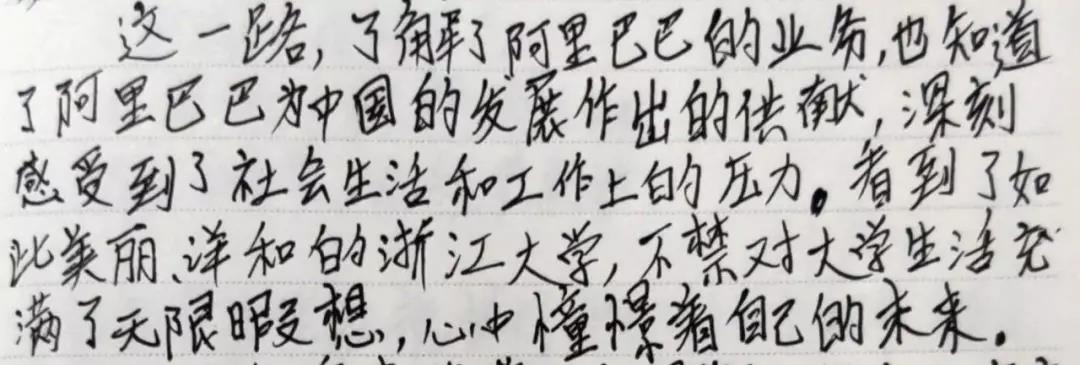 这一路，了解了阿里巴巴的业务，也知道
了阿里巴巴为中国的发展作出的供献，深刻
感受到了社会生活和工作上的压力。看到了如
此美丽、洋和的浙江大学，不禁对大学生活充
满了无限暇想，心中憧憬着自己的未来。